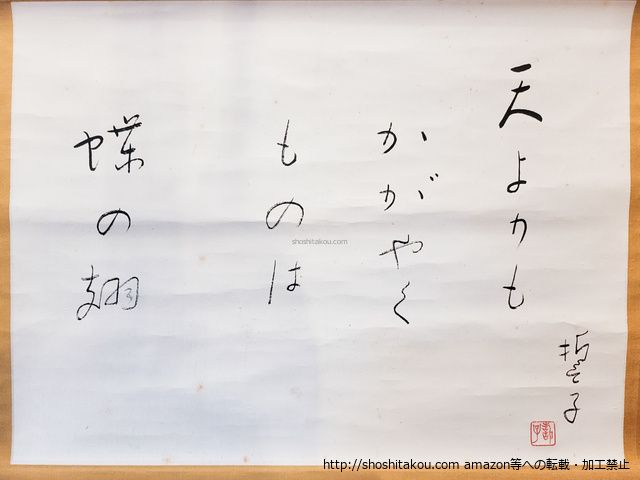 天よりも
かがやく
ものは
蝶の翅
誓子
shoshitakou.com
http://shoshitakou.com amazon等への転載・加工禁止